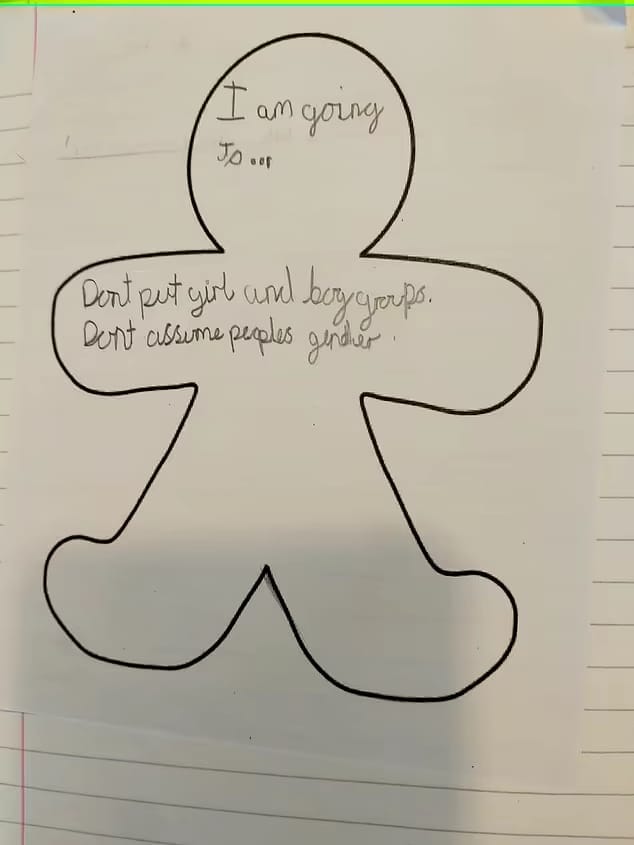 I am going
To...
Dont put girl and boy groups.
Dont assume peoples gender.